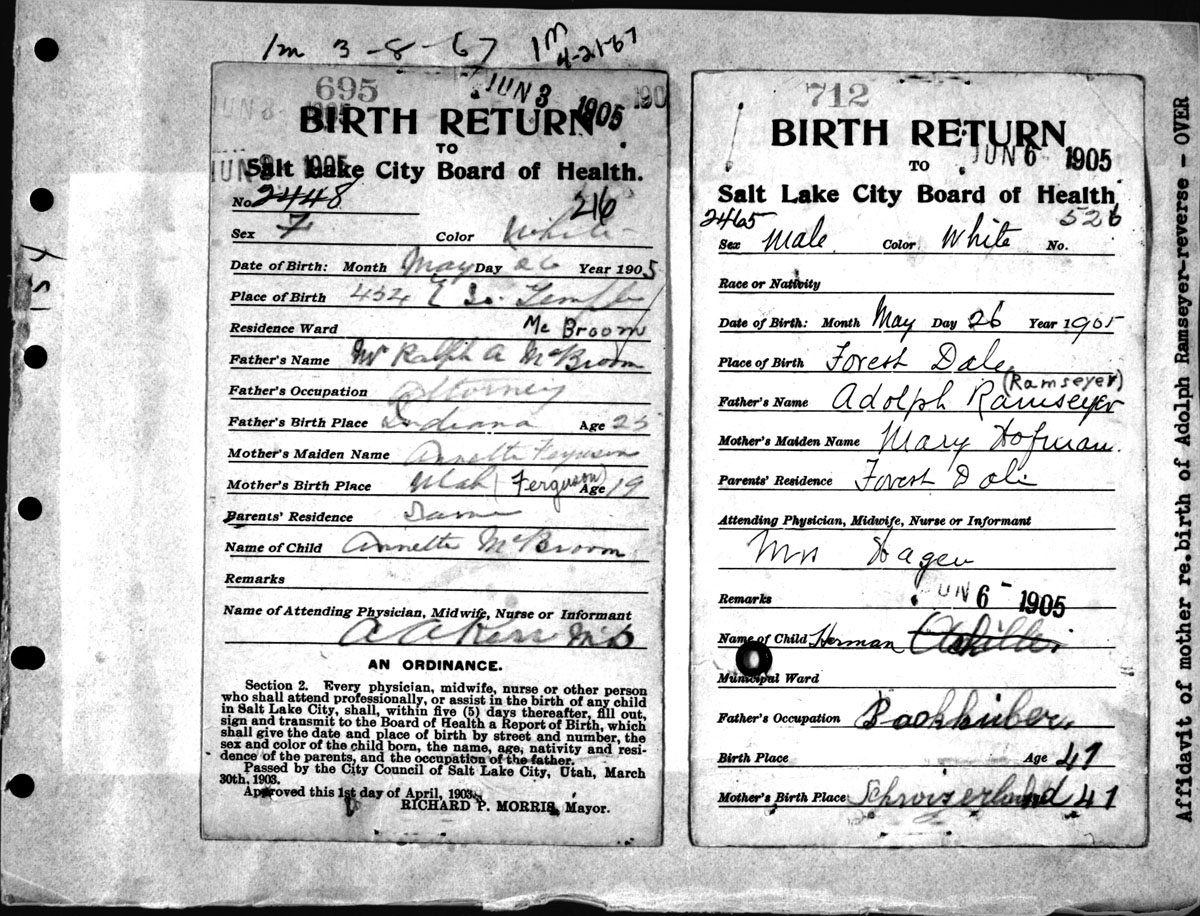 1m 3-8-67 1m 4-21-67
695
JUN 3 1905
190
JUN 3 1905
BIRTH RETURN
TO
Salt Lake City Board of Health.
No. 2448
216
Sex F Color White
Date of Birth: Month May Day 26 Year 1905
Place of Birth 454 E So. Temple
Mc Broom
Residence Ward
Father's Name Mr Ralph A McBroom
Father's Occupation Attorney
Father's Birth Place Indiana Age 25
Mother's Maiden Name Annette Ferguson
Mother's Birth Place Utah (Ferguson) Age 19
Parents' Residence Same
Name of Child Annette McBroom
Remarks
Name of Attending Physician, Midwife, Nurse or Informant
A A Kerr M.D
AN ORDINANCE.
Section 2. Every physician, midwife, nurse or other person
who shall attend professionally, or assist in the birth of any child
in Salt Lake City, shall, within five (5) days thereafter, fill out,
sign and transmit to the Board of Health a Report of Birth, which
shall give the date and place of birth by street and number, the
sex and color of the child born, the name, age, nativity and resi-
dence of the parents, and the occupation of the father.
Passed by the City Council of Salt Lake City, Utah, March
30th, 1903.
Approved this 1st day of April, 1903.
RICHARD P. MORRIS, Mayor.
712
BIRTH RETURN
TO
JUN 6 1905
Salt Lake City Board of Health
2465
526
Sex Male Color White No.
Race or Nativity
Date of Birth: Month May Day 26 Year 1905
Place of Birth Forest Dale
(Ramseyer)
Father's Name Adolph Ramseyer
Mother's Maiden Name Mary Hofman
Parents' Residence Forest Dale
Attending Physician, Midwife, Nurse or Informant
Mrs Hagen
Remarks
JUN 6 - 1905
Name of Child Herman
Municipal Ward
Father's Occupation
Birth Place Age 41
Mother's Birth Place Schweizerland 41
Affidavit of mother re.birth of Adolph Ramseyer-reverse - OVER